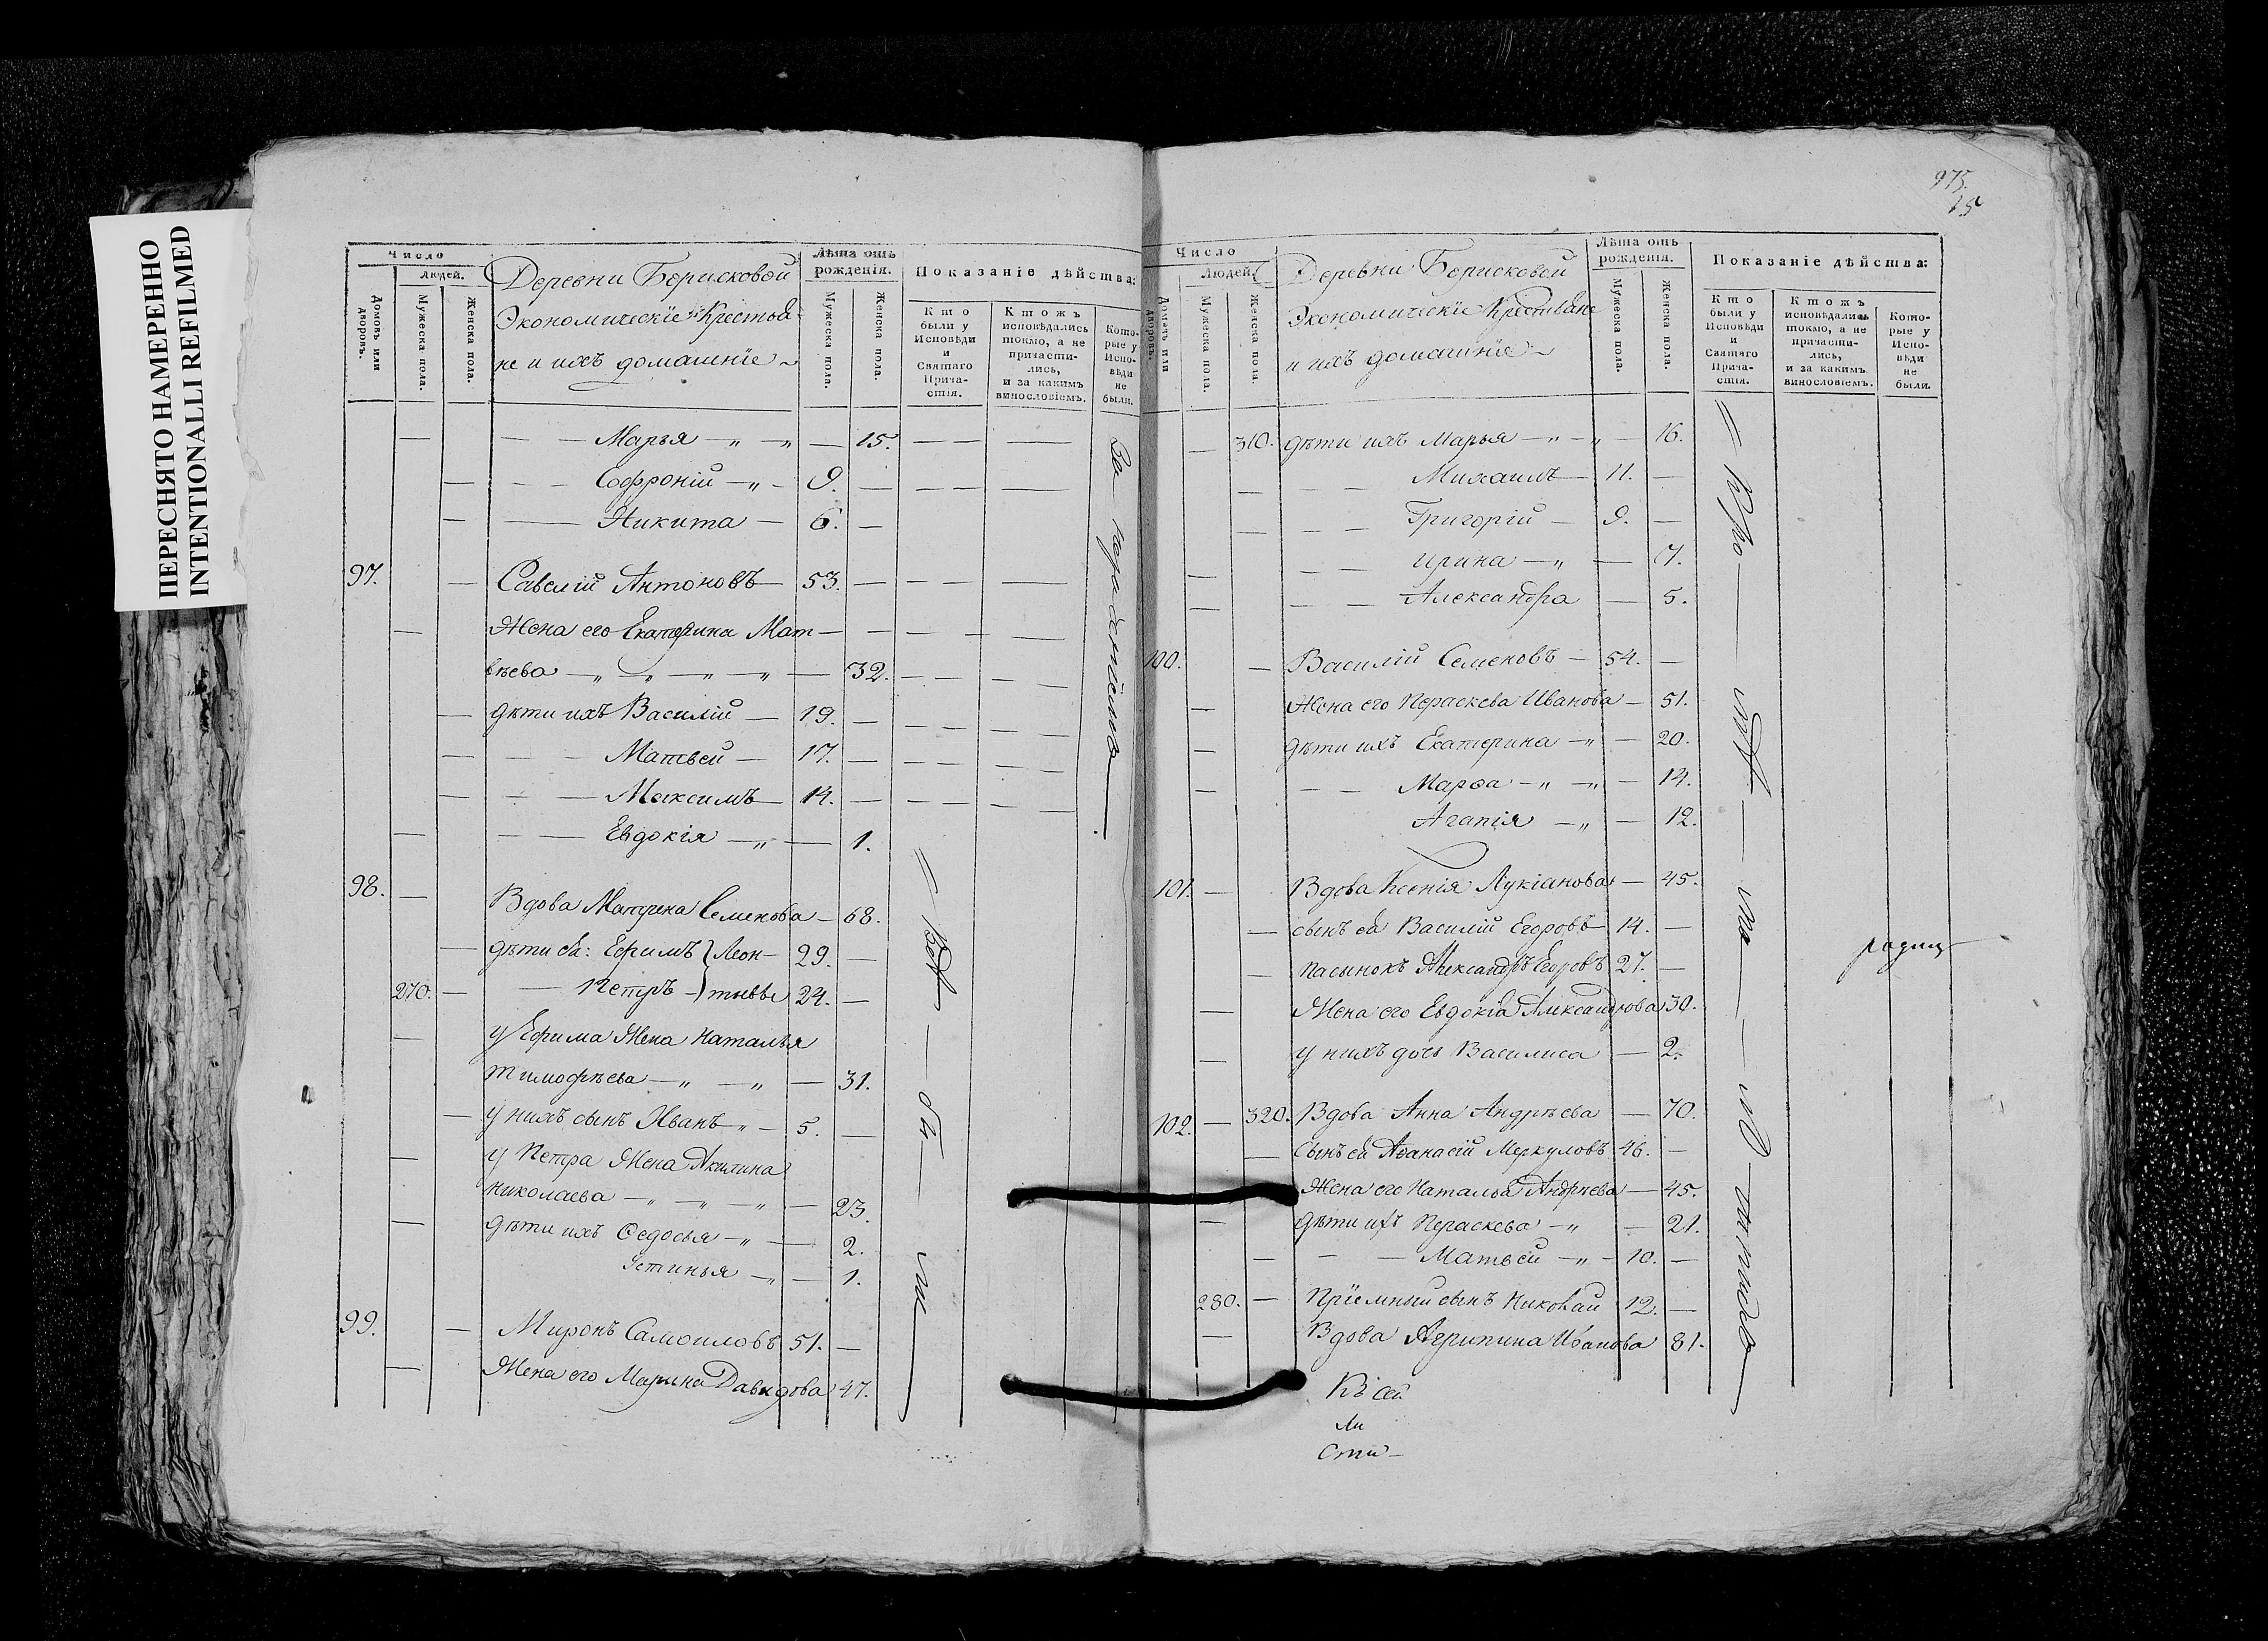 ПЕРЕСНЯТО НАМЕРЕННО
INTENTIONALLI REFILMED
Число
Людей.
Домовъ или дворовъ.
Мужеска пола.
Женска пола.
Деревни Борисковой
Экономическіе Крестья-
не и ихъ домашніе
Лѣта отъ рожденія.
Мужеска пола.
Женска пола.
Показаніе дѣйства:
Кто были у Исповѣди и Святаго Причастія.
Ктожъ исповѣдались токмо, а не причастились, и за какимъ винословіемъ.
Которые у Исповѣди не были.
— — Марья — „ — „ — 15.
— — Софроній — „ — 9. —
— — Никита — 6. —
97. — Савелій Антоновъ — 53. —
— Жена его Екатерина Мат—
вѣева — „ — „ — „ — „ — 32.
— дѣти ихъ Василій — 19. —
— — — Матвей — 17. —
— — — Максимъ — 14. —
— — — Евдокія — „ — 1.
98. — Вдова Матрена Семенова — 68.
— дѣти ея: Ефимъ } Леон— 29. —
270. — — Петръ — } тьевы 24. —
— у Ефима Жена Наталья
Тимофѣева — „ — „ — 31.
— у нихъ сынъ Иванъ — „ — 5. —
— у Петра Жена Акилина
Николаева — „ — „ — „ — 23.
— дѣти ихъ Ѳедосья — „ — 2.
Устинья — „ — 1.
99. — Миронъ Самоиловъ 51. —
— Жена его Марина Давидова 47.
За нерадѣніемъ
Всѣ — бы — ли
975.
25
Число
Людей.
Домовъ или дворовъ.
Мужеска пола.
Женска пола.
Деревни Борисковой
Экономическіе Крестьяне
и ихъ домашніе
Лѣта отъ рожденія.
Мужеска пола.
Женска пола.
Показаніе дѣйства:
Кто были у Исповѣди и Святаго Причастія.
Ктожъ исповѣдались токмо, а не причастились, и за какимъ винословіемъ.
Которые у Исповѣди не были.
— 310. дѣти ихъ Марья — „ — „ — 16.
— — — Михаилъ — 11. —
— — — Григорій — 9. —
— — — Ирина — „ — 7.
— — — Александра — 5.
100. — Василій Семеновъ — 54. —
— Жена его Пераскева Иванова — 51.
— дѣти ихъ Екатерина — „ — 20.
— — — Марѳа — „ — „ — 14.
Агапія — „ — 12.
101. — Вдова Ксенія Лукіанова — 45.
— сынъ ея Василій Егоровъ 14. —
— пасынокъ Александръ Егоровъ 27. —
— Жена его Евдокія Александрова 30.
— у нихъ дочь Василиса — 2.
102. — 320. Вдова Анна Андрѣева — 70.
— Сынъ ей Аѳанасій Меркуловъ 46. —
Жена его Наталья Андрѣева — 45.
— дѣти ихъ Пераскева — „ — 21.
— — — Матвей — „ — 10. —
280. — Пріемный сынъ Николай 12. —
— Вдова Агрипина Иванова 81.
Къ сей
ли
сти—